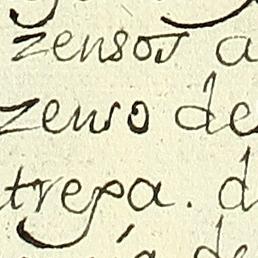 zensos a
zenso de
trepa. d